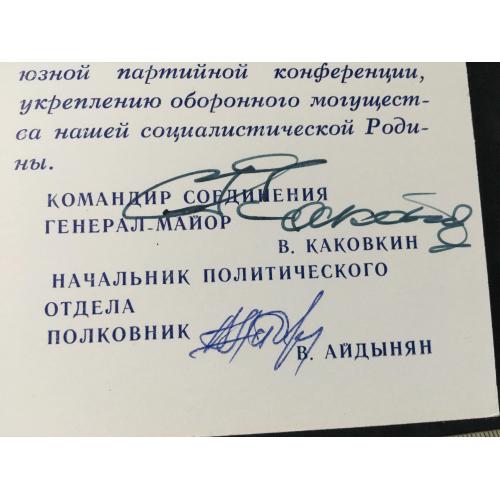 юзной партийной конференции,
укреплению оборонного могущест-
ва нашей социалистической Роди-
ны.
КОМАНДИР СОЕДИНЕНИЯ
ГЕНЕРАЛ-МАЙОР
В. КАКОВКИН
НАЧАЛЬНИК ПОЛИТИЧЕСКОГО
ОТДЕЛА
ПОЛКОВНИК
В. АЙДЫНЯН